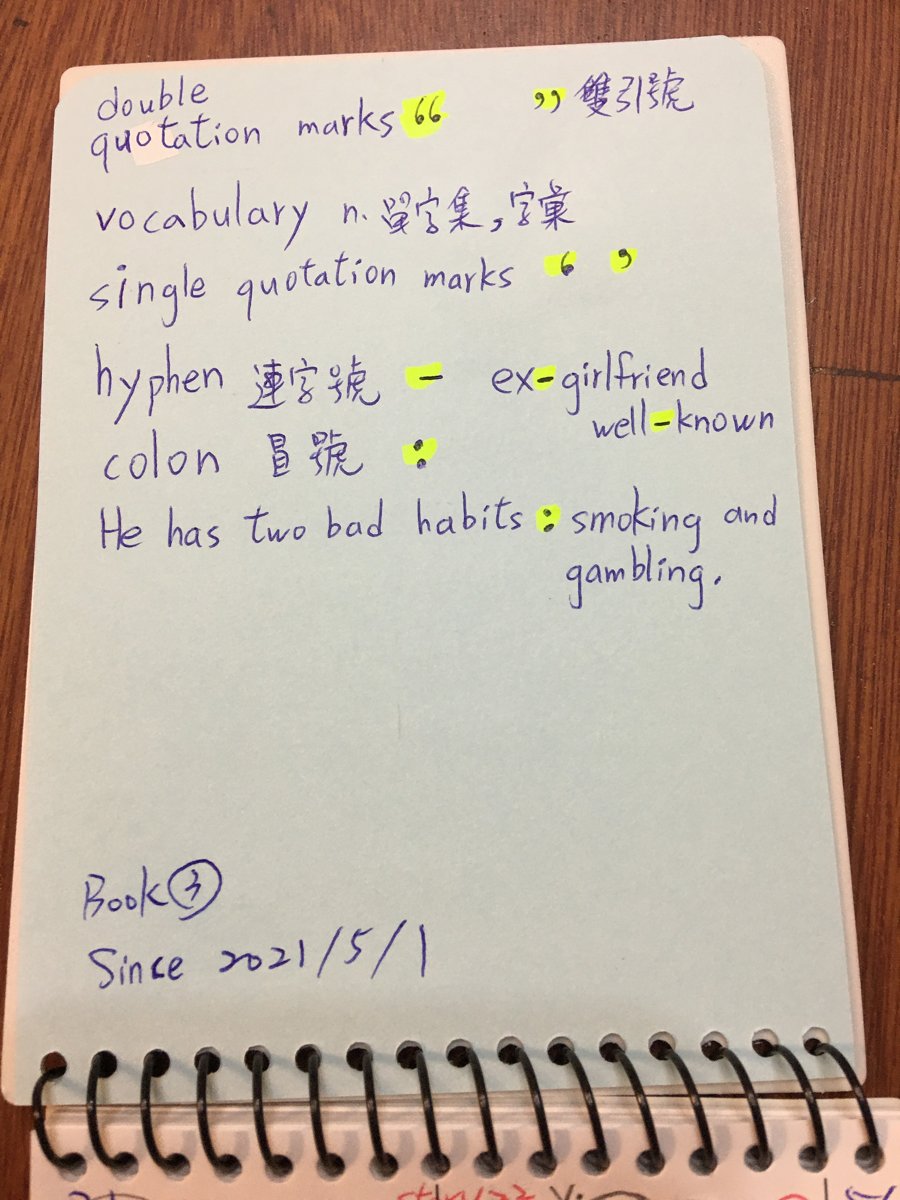 double
quotation marks “ ” 雙引號
vocabulary n. 單字集,字彙
single quotation marks ‘ ’
hyphen 連字號 - ex-girlfriend
well-known
colon 冒號 :
He has two bad habits : smoking and
gambling.
Book ③
Since 2021/5/1